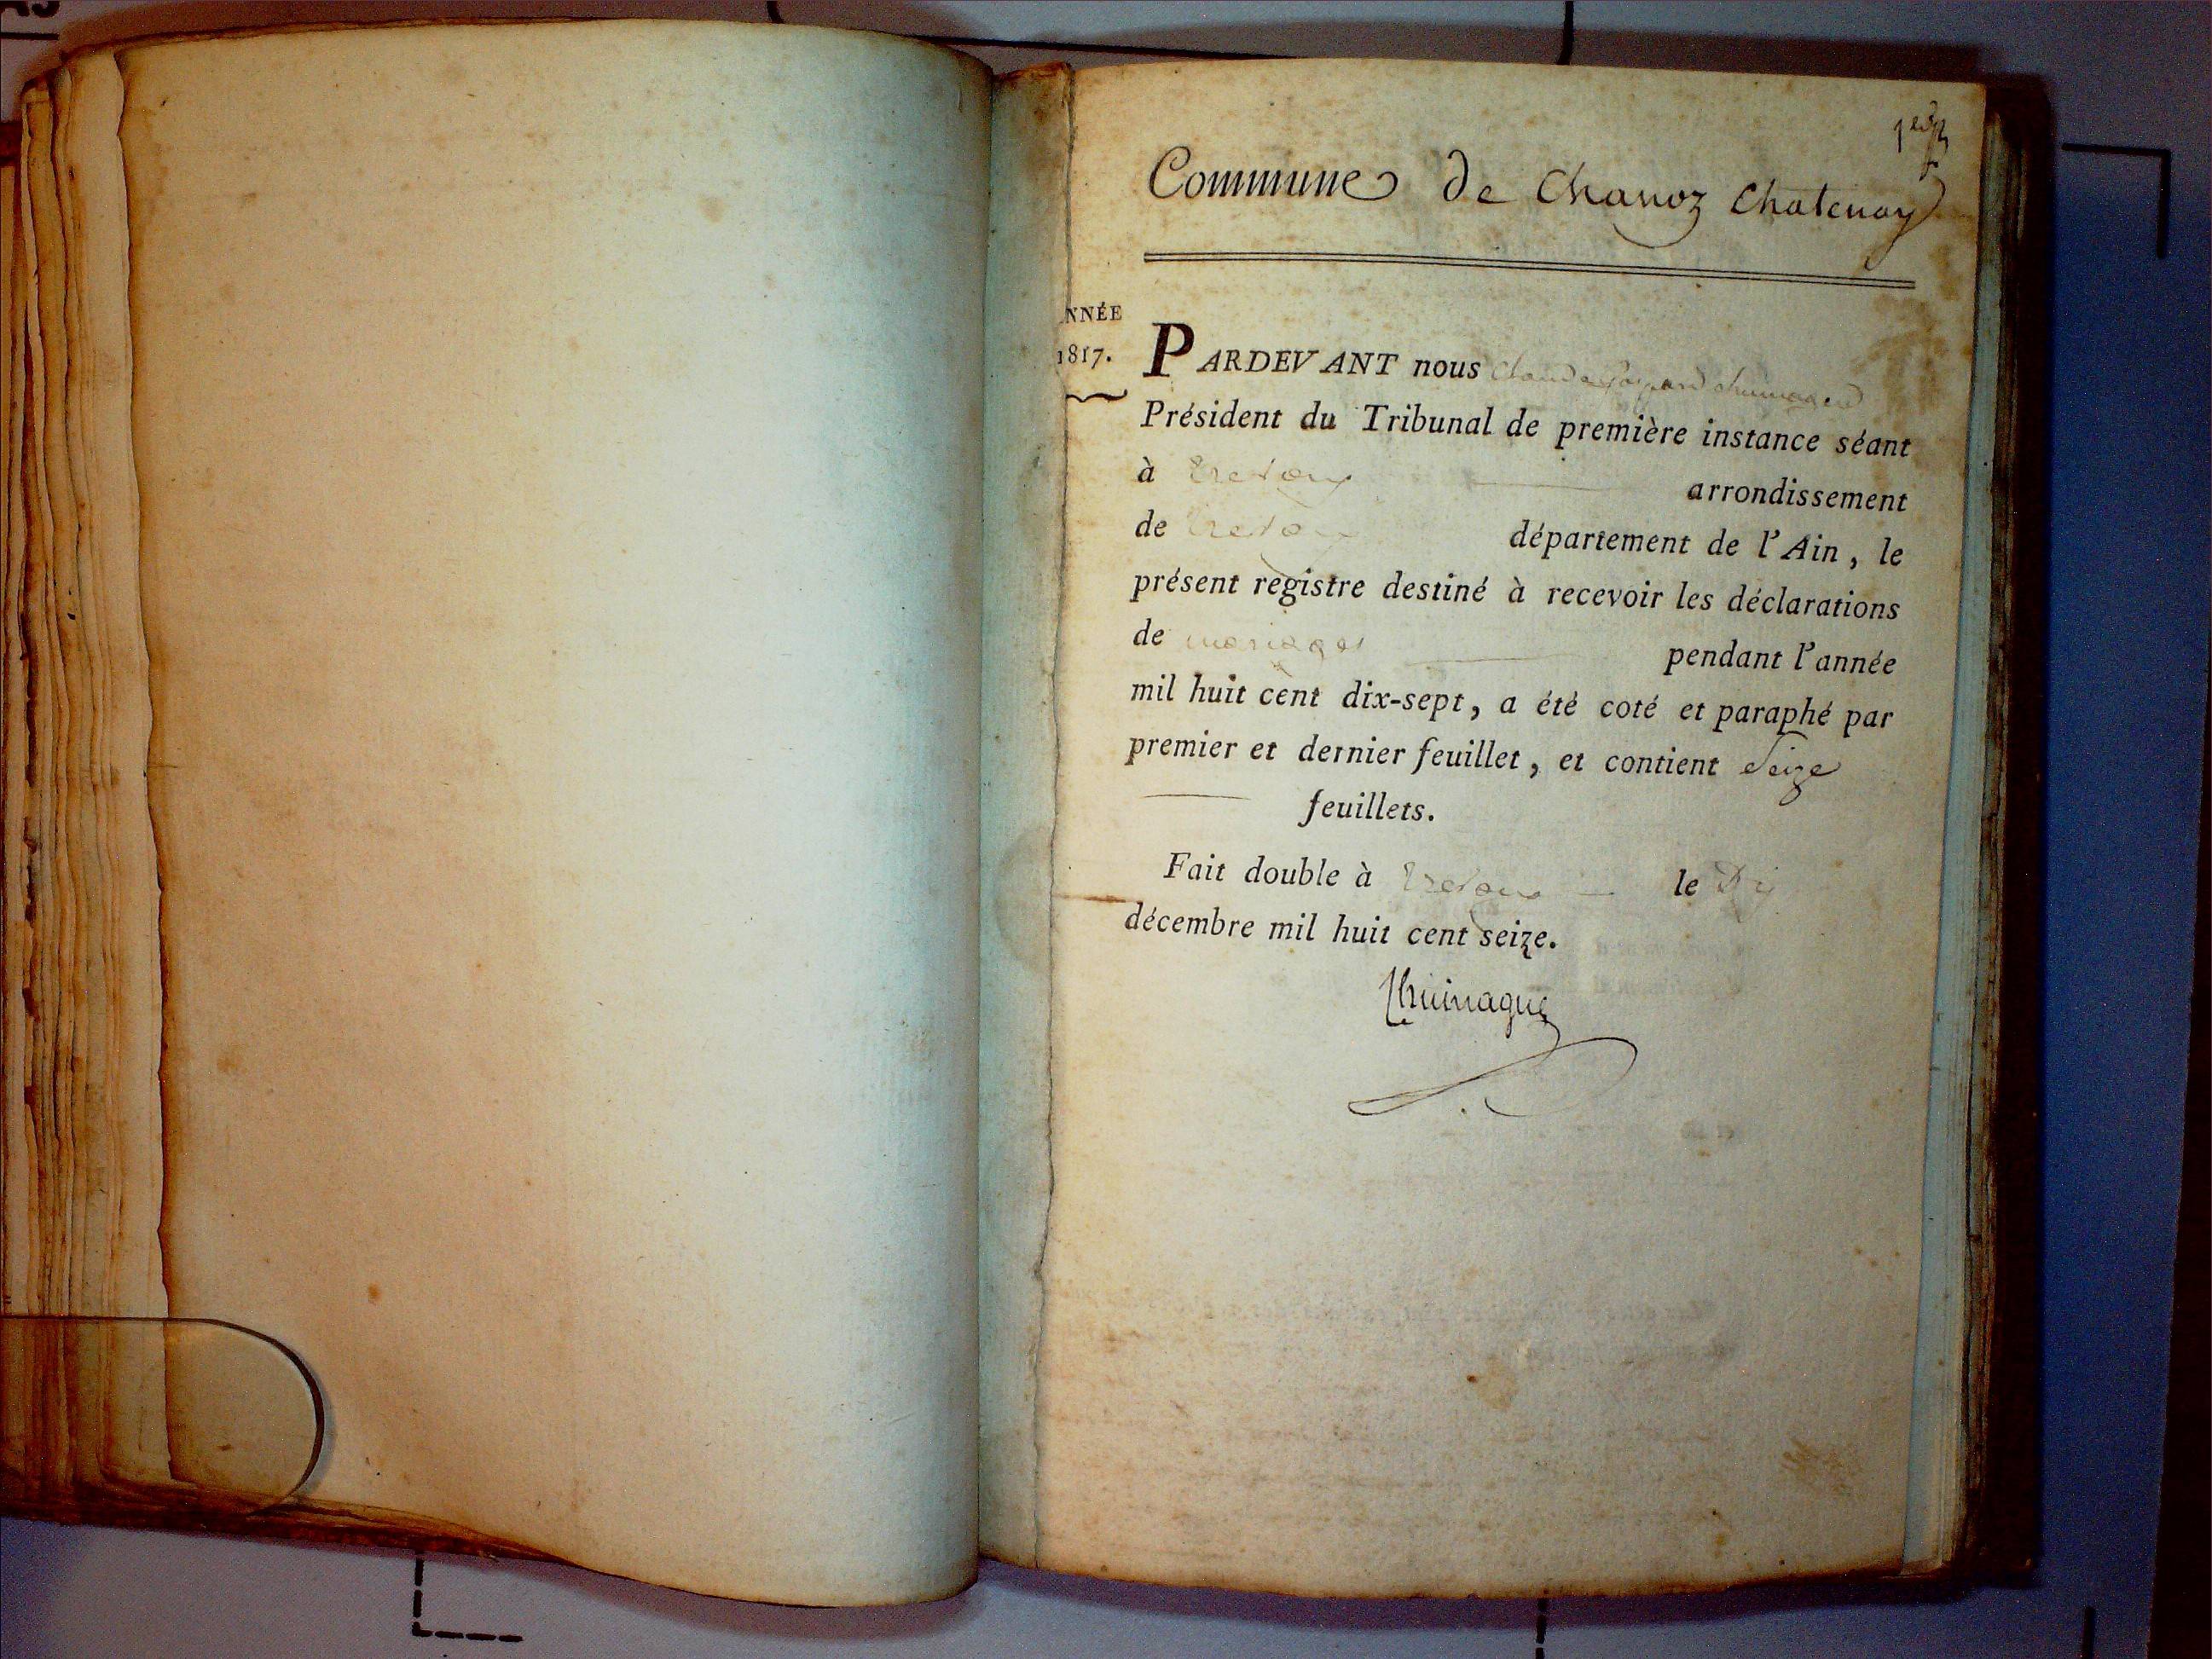 Commune de Chanoz Chatenay
NNÉE
1817.
PARDEVANT nous Claude Gaspard
Président du Tribunal de première instance séant
à Trévoux arrondissement
de Trévoux département de l'Ain, le
présent registre destiné à recevoir les déclarations
de mariages pendant l'année
mil huit cent dix-sept, a été coté et paraphé par
premier et dernier feuillet, et contient Seize
feuillets.
Fait double à Trévoux le
décembre mil huit cent seize.